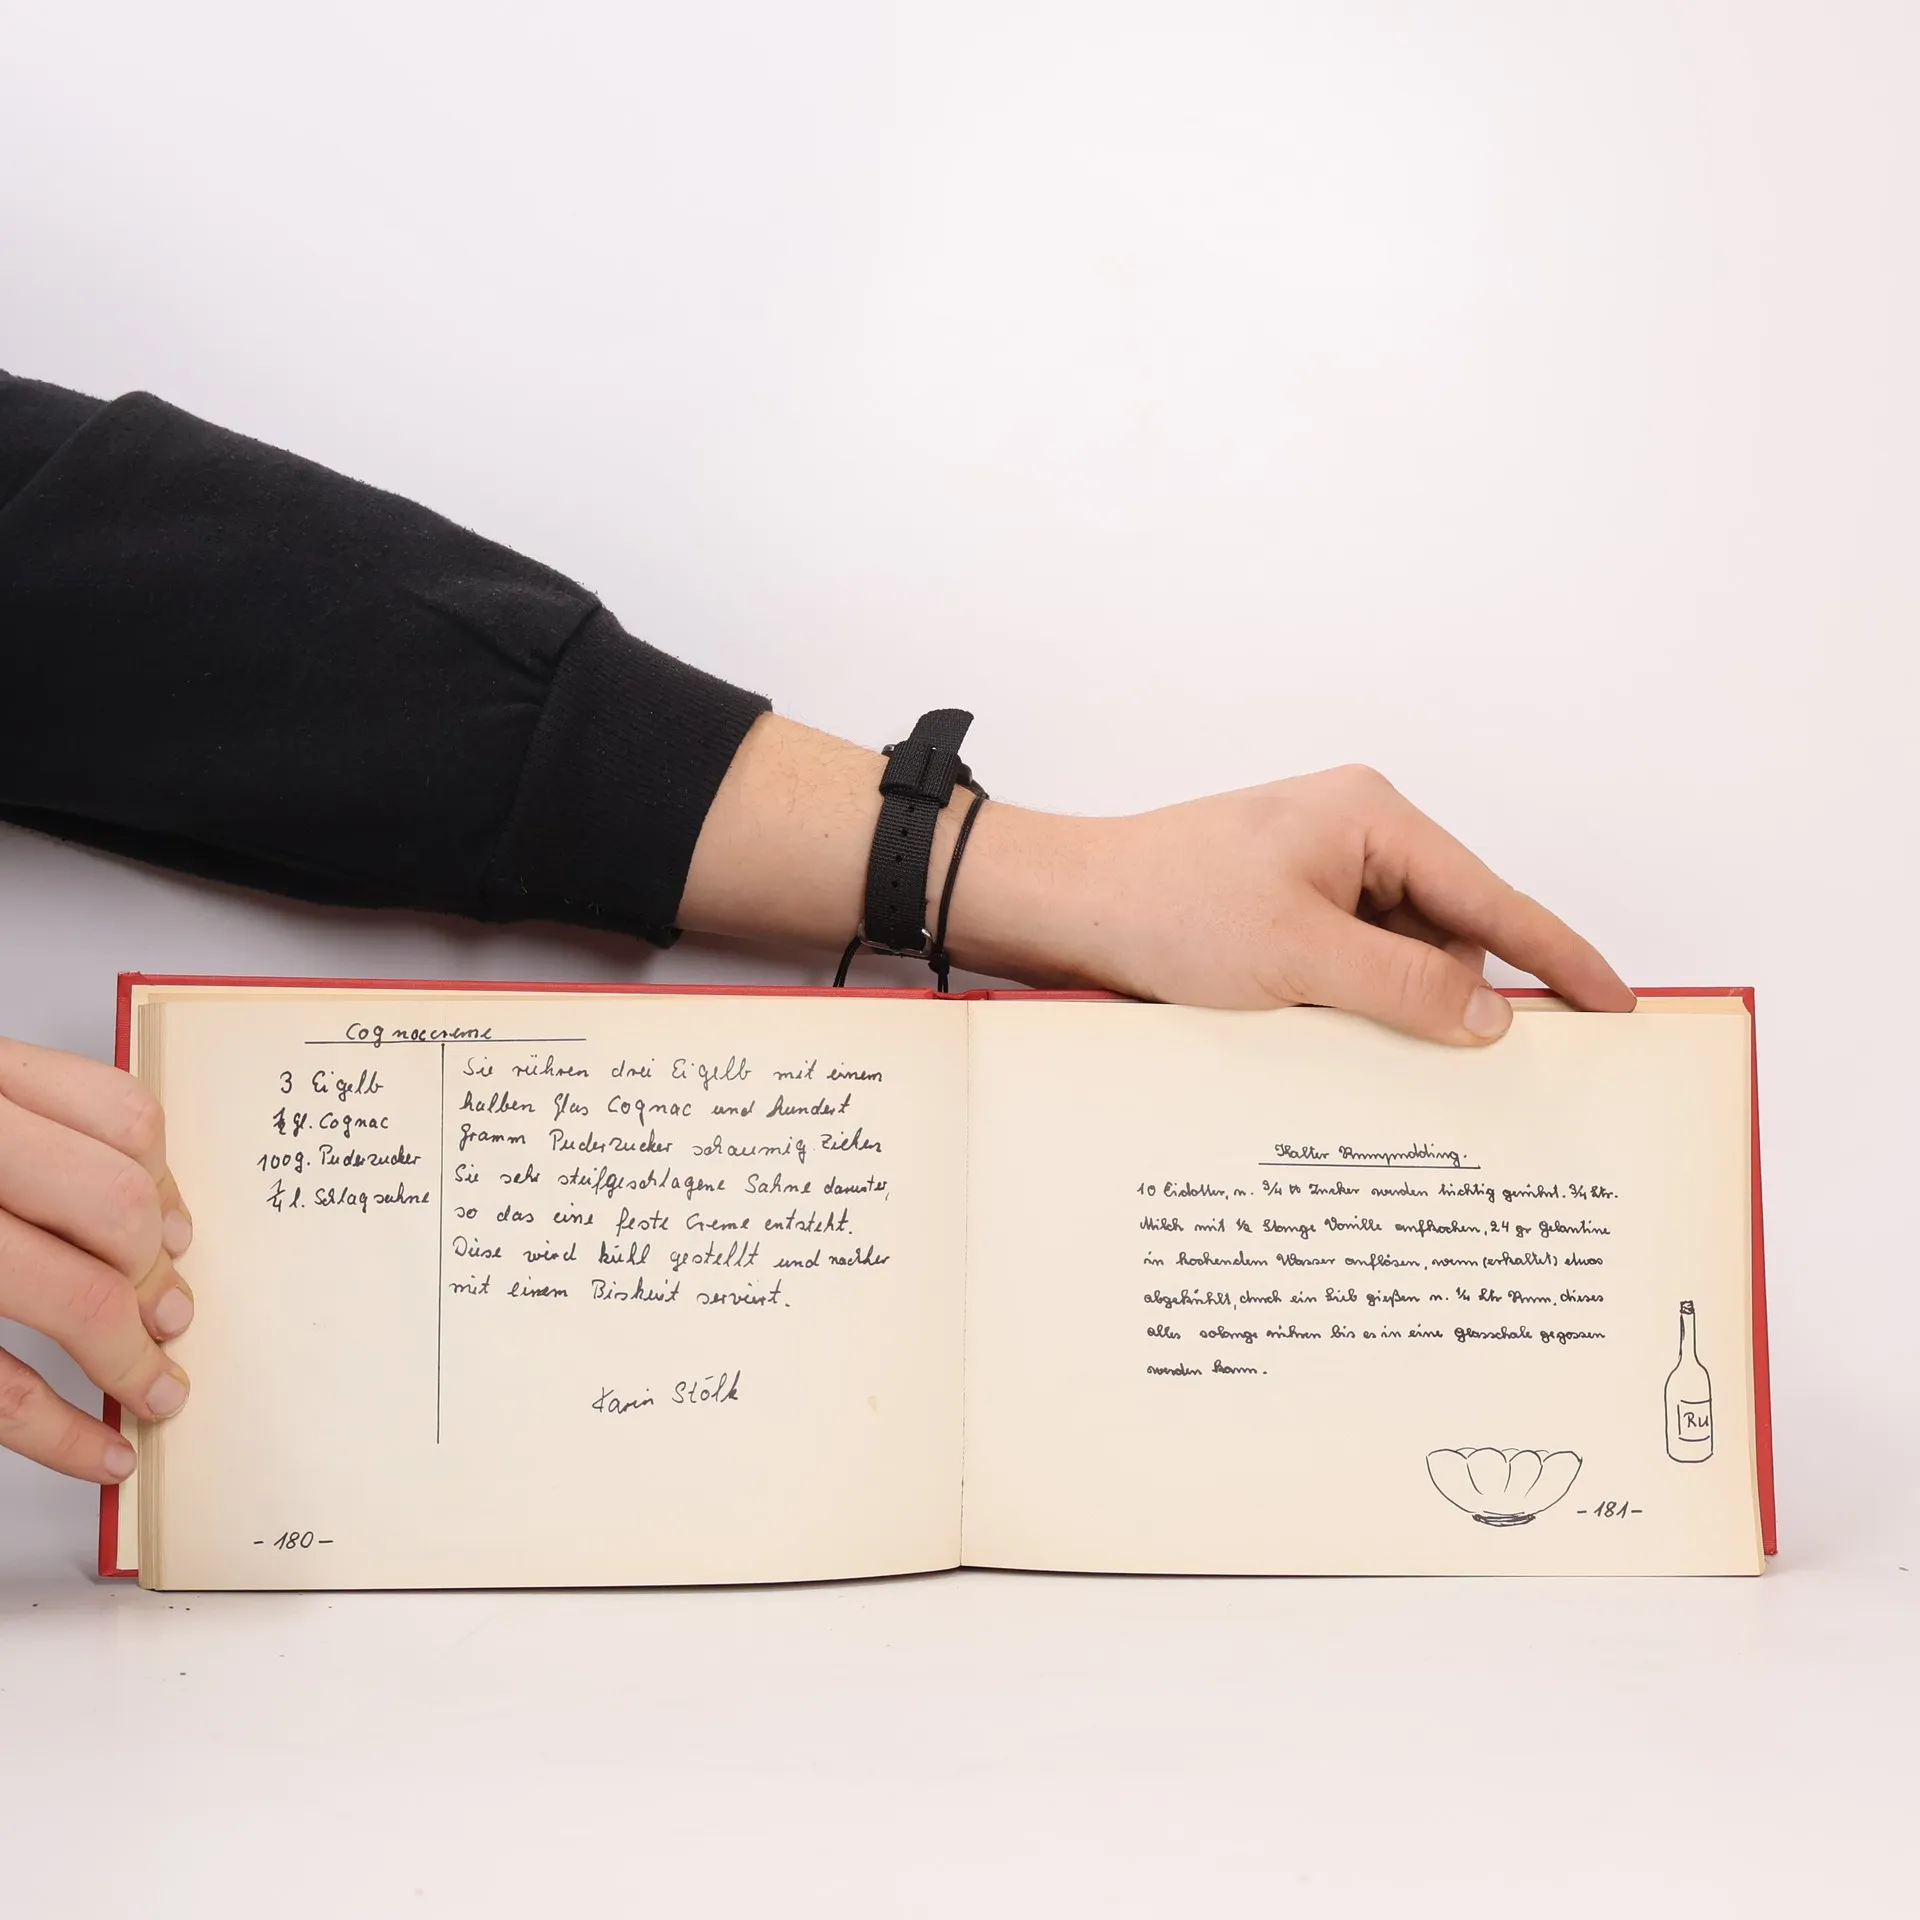 Cognaccreme
3 Eigelb
½ gl. Cognac
100g. Puderzucker
¼ l. Schlagsahne
Sie rühren drei Eigelb mit einem
halben Glas Cognac und hundert
Gramm Puderzucker schaumig. Ziehen
Sie sehr steifgeschlagene Sahne darunter,
so das eine feste Creme entsteht.
Diese wird kühl gestellt und nachher
mit einem Biskuit serviert.
Karin Stölk
- 180 -
Kalter Rumpudding.
10 Eidotter, u. ¾ ℔ Zucker werden tüchtig gerührt. ¾ Ltr.
Milch mit ½ Stange Vanille aufkochen, 24 gr Gelantine
in kochendem Wasser auflösen, wenn (erkaltet) etwas
abgekühlt, durch ein Sieb gießen u. ¼ Ltr Rum, dieses
alles solange rühren bis es in eine Glasschale gegossen
werden kann.
Ru
- 181 -